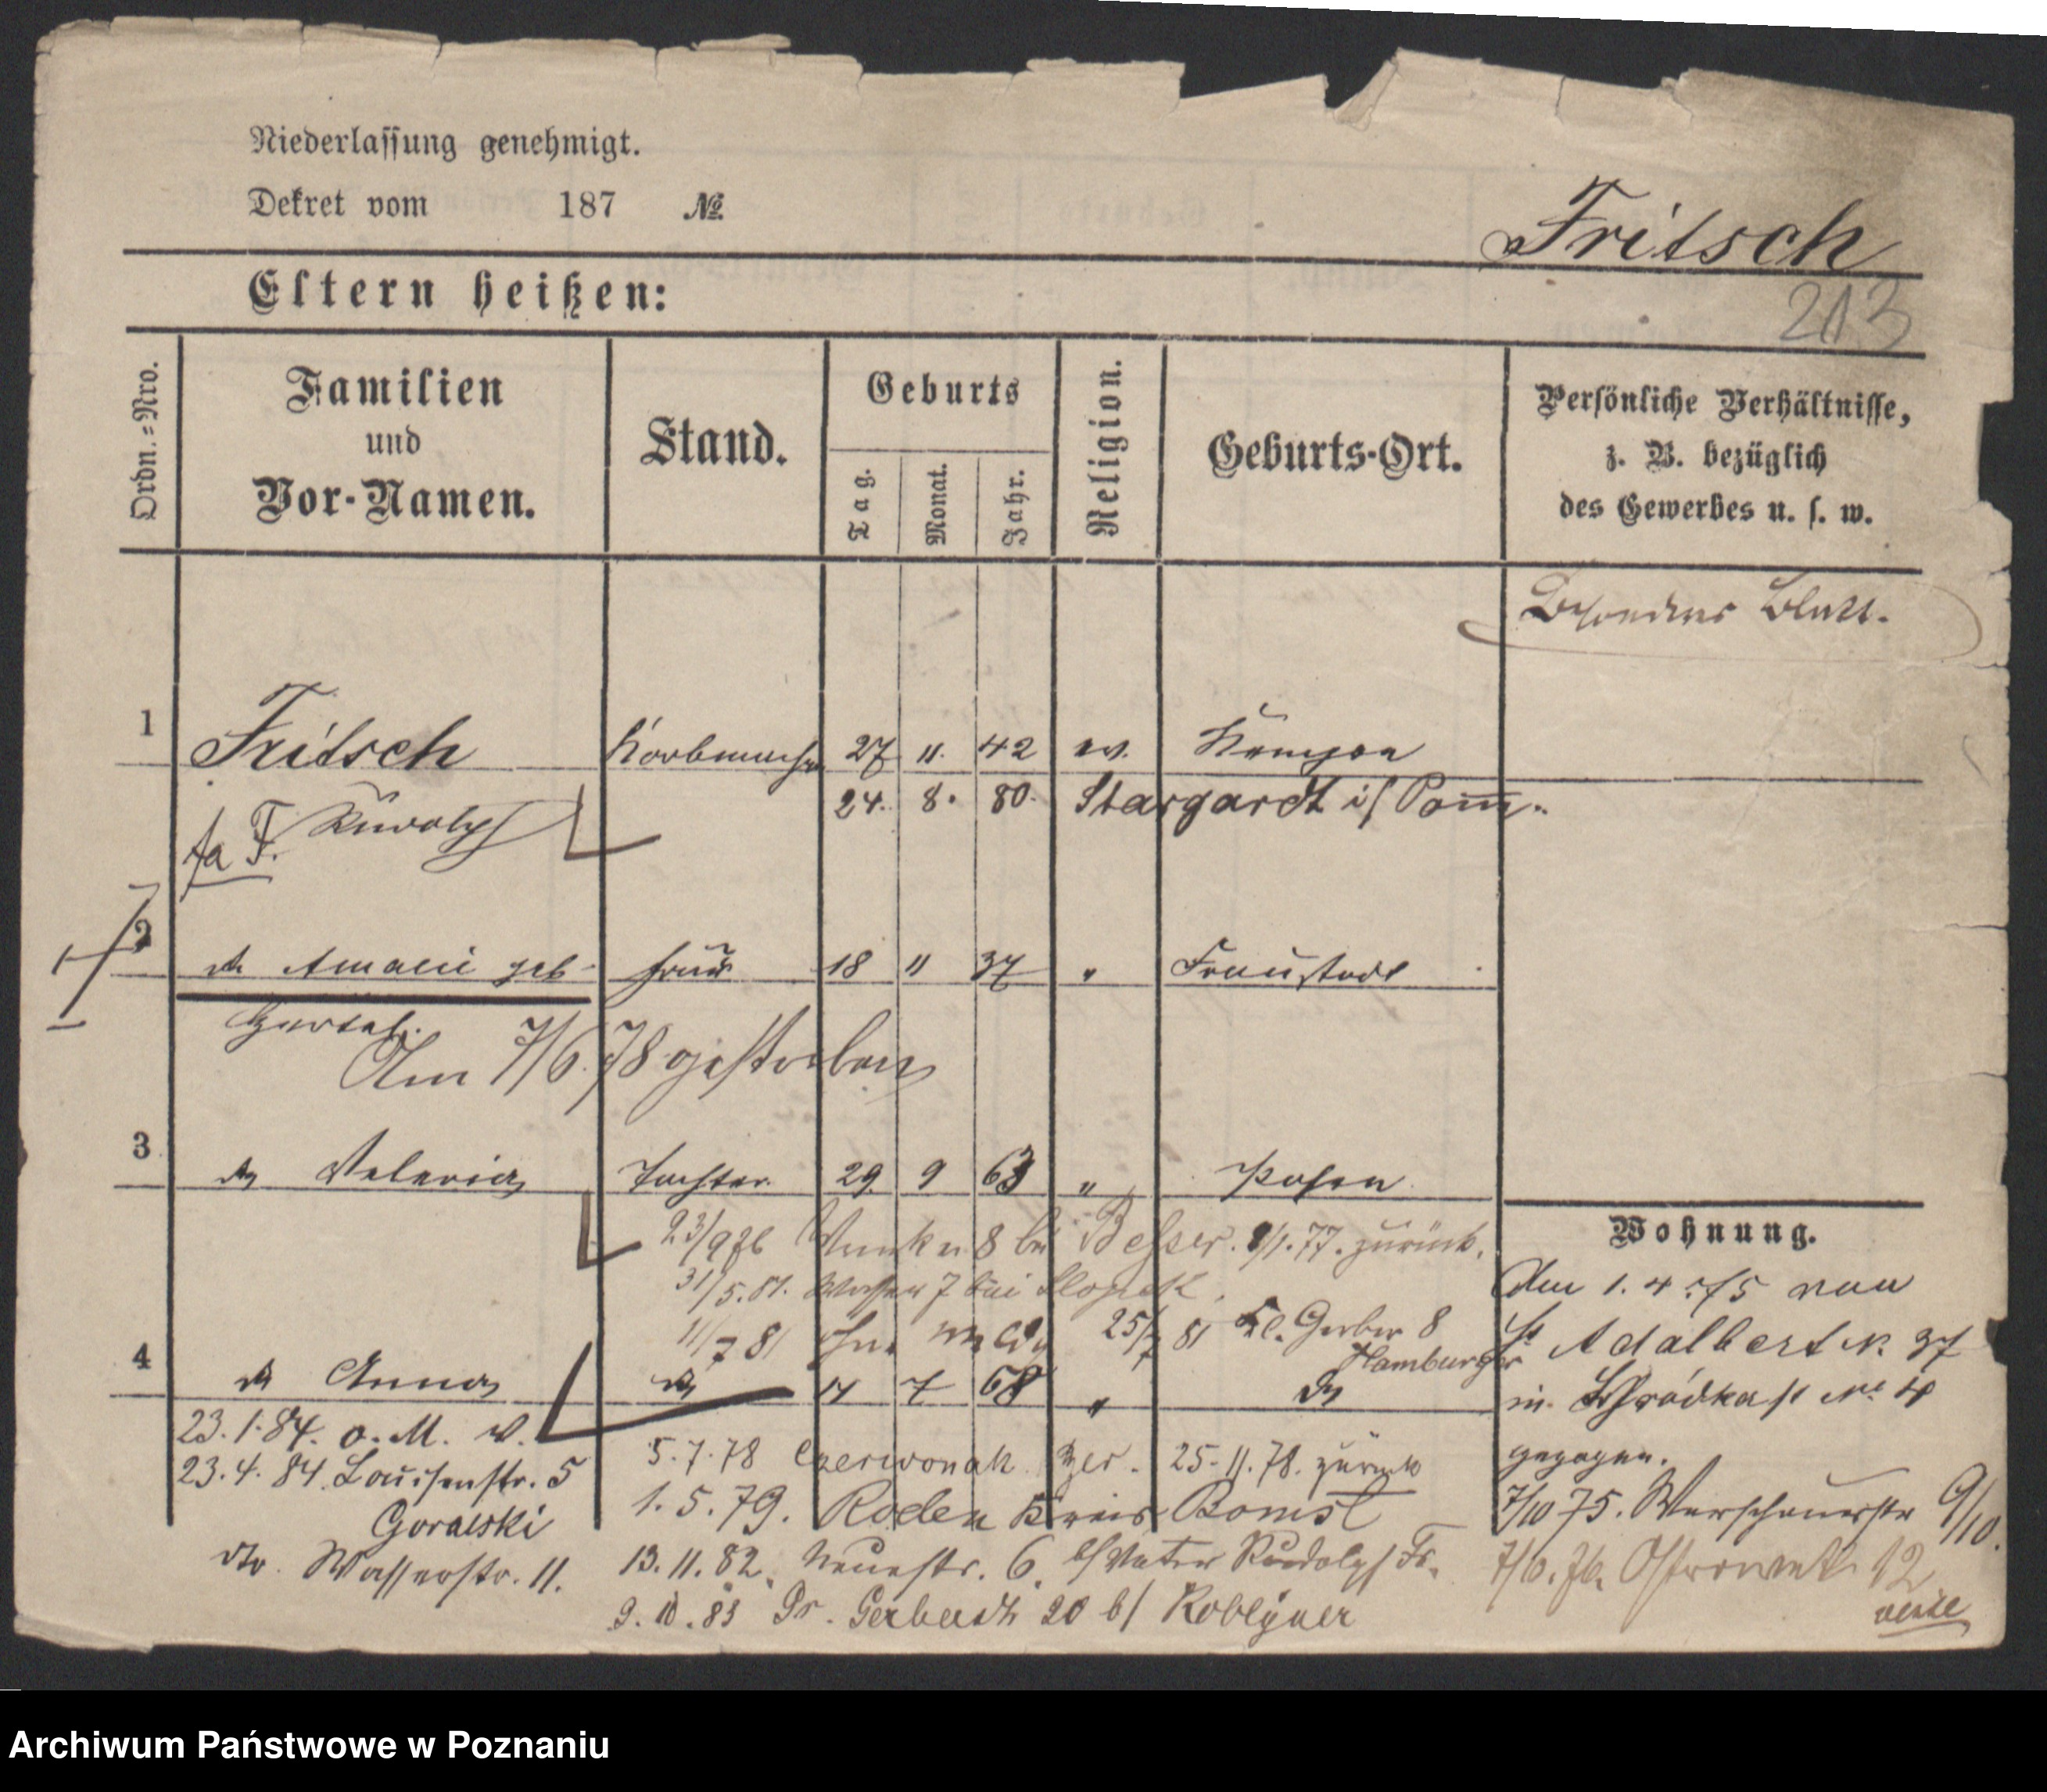 Niederlassung genehmigt.
Dekret vom 187 No.
Fritsch
Eltern heißen:
213
Ordn.-Nro.
Familien und Vor-Namen.
Stand.
Geburts
Tag.
Monat.
Jahr.
Religion.
Geburts-Ort.
Persönliche Verhältnisse, z. B. bezüglich des Gewerbes u. s. w.
Besonderes Blatt.
1 Fritsch Korbmacher 27 11. 42 ev. Kempen
Rudolph 24. 8. 80. Stargardt i/ Pom.
2 do Amalie geb. Frau 18 11 37 " Fraustadt
Am 7/6 78 gestorben
3 do Valeria Tochter 29. 9 63 " Posen
23/9 76 8 bei Besser. 9/1. 77. zurück.
31/5. 81. Wasser 7 bei
11/7 81 ohne 25/7 81 Kl. Gerber 8
Hamburger
4 do Anna do 14 7 68 " do
23. 1. 84. o. M. v.
23. 4. 84. Louisenstr. 5
Goralski
do. Wasserstr. 11.
5. 7. 78 Czerwonak 25. 11. 78. zurück
1. 5. 79. Roden Kreis Bomst
13. 11. 82. Neuestr. 6. b/ Vater Rudolph Fr.
9. 10. 83 Gr. Gerberstr 20 b/
Wohnung.
Am 1. 4. 75 von
St Adalbert N. 37
in Schrodka N. 4
gezogen.
7/10 75. Warschauerstr 9/10.
7/6. 76. Ostrowek 12
verte
Archiwum Państwowe w Poznaniu